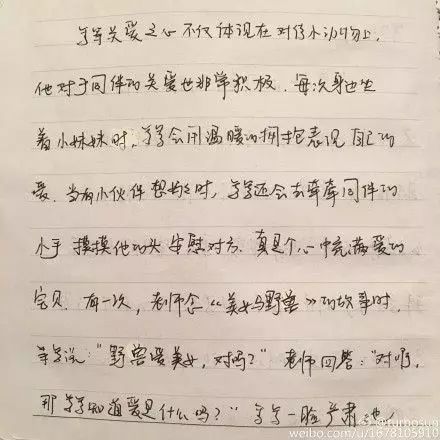 等等关爱之心不仅体现在对待小动物上,
他对于同伴的关爱也非常积极. 每次身边坐
着小妹妹时, 等等会用温暖的拥抱表现自己的
爱. 当有小伙伴想妈妈时, 等等还会去牵牵同伴的
小手 摸摸他的头 安慰对方. 真是个心中充满爱的
宝贝. 有一次, 老师念《美女与野兽》的故事时.
等等说: "野兽爱美女, 对吗?" 老师回答: "对啊,
那等等知道爱是什么吗?" 等等一脸严肃地
@turbosun
weibo.com/u/1678105910